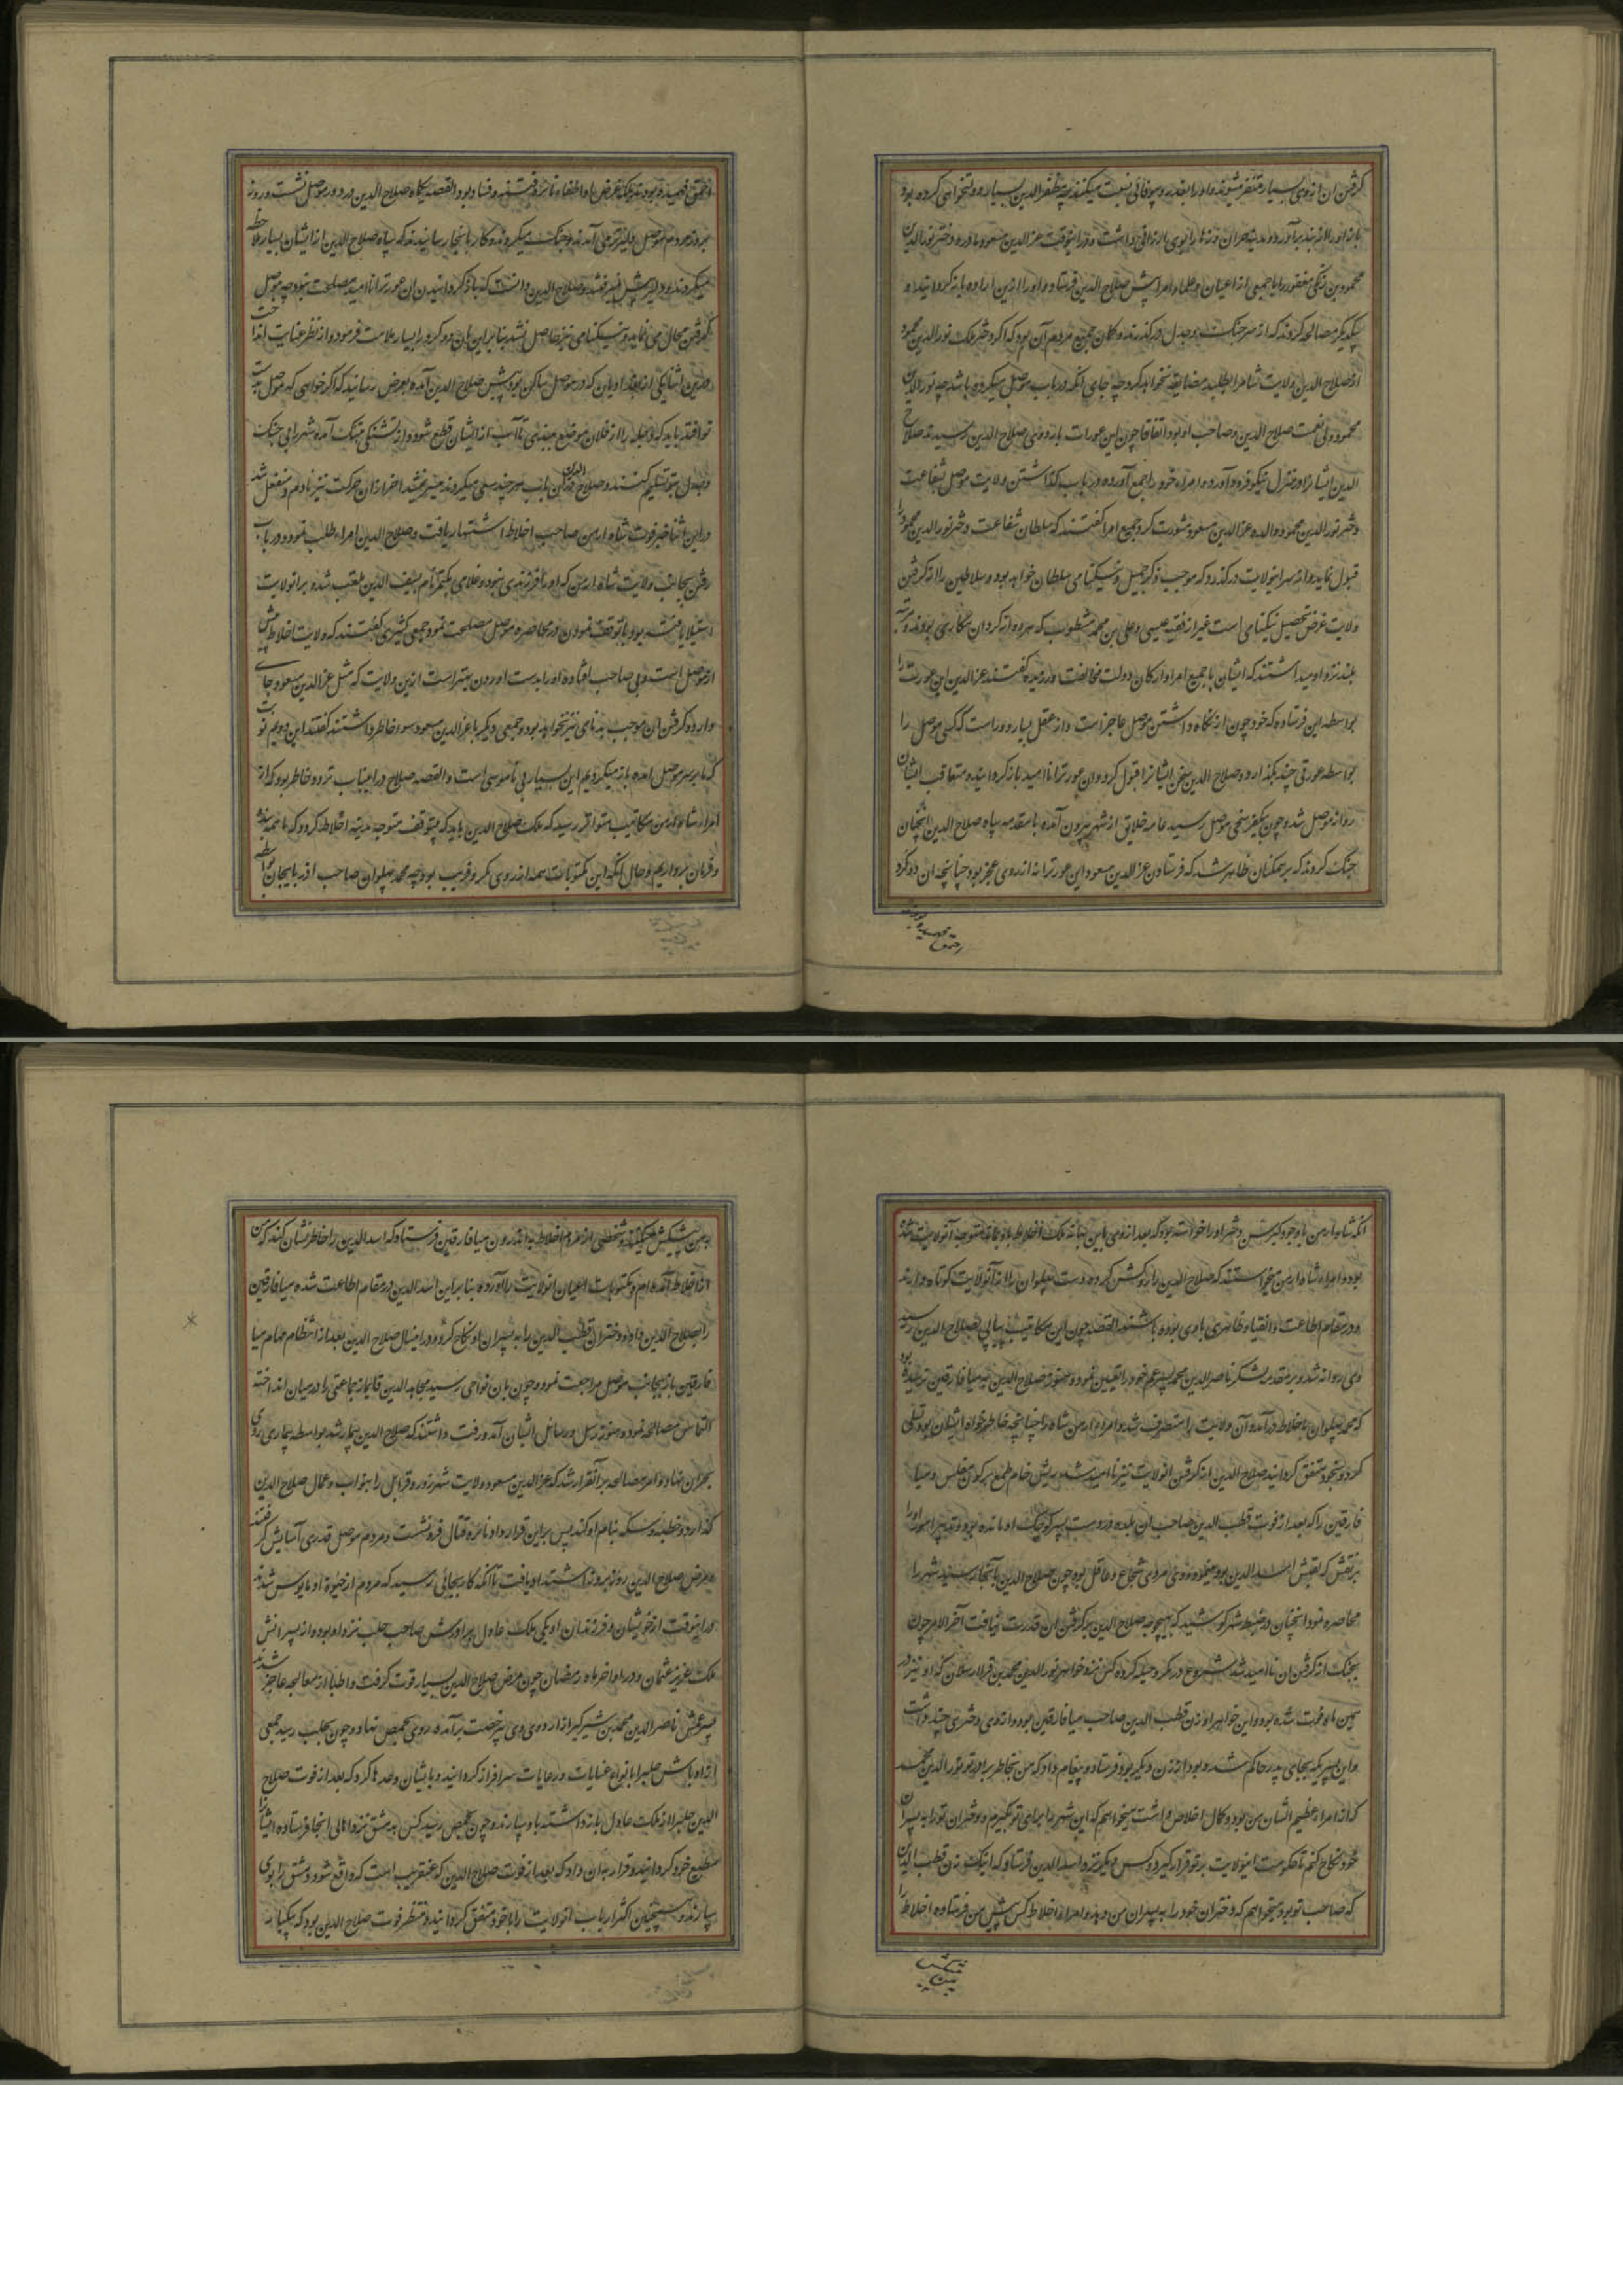 گرفتن ان ازوی بسیار متنفر میشوند و او را بغدر و بیوفائی نسبت میکنند چه مظفرالدین بسیار دولتخواهی کرده بود
بازاو را از بند برآورد و مدینه حران و زها را بوی ارزانی داشت و در اینوقت عزالدین مسعود مادر و دختر نورالدین
محمود بن زنکی مغفور را با جمعی از اعیان و علما و امرا پیش صلاح الدین فرستاد و او را ازین اراده بازگردانیده با
یکدیگر مصالحه کردند که از سر جنک و جدل درگذرند و گمان جمیع مردم آن بود که اگر دختر ملک نورالدین محمود
از صلاح الدین ولایت شام را طلبد مضایقه نخواهد کرد چه جای انکه در باب موصل میگیرد و باشد چه نورالدین
محمود ولی نعمت صلاح الدین و صاحب او بود اتفاقا چون این عورات باردوی صلاح الدین رسیدند صلاح
الدین ایشانرا در منزل نیکو فرود آورد و امراء خود را جمع آورده در باب گذاشتن ولایت موصل بشفاعت
دختر نورالدین محمود و والده عزالدین مسعود مشورت کرد جمیع امرا گفتند که سلطان شفاعت دختر نورالدین محمود را
قبول نماید و از سر اینولایت درگذرد که موجب ذکر جمیل و نیکنامی سلطان خواهد بود و سلاطین را از گرفتن
ولایت غرض تحصیل نیکنامی است غیر از فقیه عیسی و علی بن محمد مشطوب که هردو از کردان هکاری بودند و مرتبه
بلند نزد او میداشتند که ایشان با جمیع امرا و ارکان دولت مخالفت ورزیده گفتند عزالدین این عورت را
بواسطه این فرستاده که خود چون از نگاه داشتن موصل عاجز است و از عقل بسیار دور است که کسی موصل را
بواسطه عورتی چند بگذارد و صلاح الدین سخن ایشانرا قبول کرد و ان عورترا ناامید بازگردانیده متعاقب ایشان
روانه موصل شد و چون بیکفرسخی موصل رسید عامه خلایق از شهر بیرون آمده با مقدمه سپاه صلاح الدین انچنان
جنک کردند که بر همکنان ظاهر شد که فرستادن عزالدین مسعود این عورترا نه از روی عجز بود چنانچه ان دو کرد
احمق فهمیده بودند بلکه غرض او اطفاء نائره فتنه و فساد بود القصه یکماه صلاح الدین در دور موصل نشست و روز
بروز مردم موصل دلیرتر می آمدند و جنک میکردند و کار بانجا رسانیدند که سپاه صلاح الدین از ایشان بسیار ملاحظه
میکردند و دلیر پیش نمیرفتند و صلاح الدین دانست که بازگردانیدن ان عورترا ناامید مصلحت نبود چه موصل
گرفتن محال می نماید و نیکنامی نیز حاصل نشد بنابراین بان دو کرد را بسیار ملامت فرمود و از نظر عنایت انداخت
درین اثنا یکی از بغدادیان که در موصل ساکن بود پیش صلاح الدین آمده بعرض رسانید که اگر خواهی که موصل بدست
تو افتد باید که دجله را از فلان موضع ببندی تا آب از ایشان قطع شود و از تشنکی بتنک آمده شهر را بی جنک
و جدل بتو تسلیم کنند و صلاح الدین درین باب هرچند سعی میکردند میسر نمیشد آخر ازان حرکت نیز نادم و منفعل شد
و در این اثنا خبر فوت شاه ارمن صاحب اخلاط اشتهار یافت و صلاح الدین امراء طلب نمود و در باب
رفتن بجانب ولایت شاه ارمن که او را فرزندی نبود و غلامی بکتمر نام بسیف الدین ملقب شده بر انولایت
استیلا یافته بود با توقف نمودن در محاصره موصل مصلحت نمود جمعی کثیری گفتند که ولایت اخلاط پیش
از موصل است و بی صاحب افتاده او را بدست اوردن بهتر است ازین ولایت که مثل عزالدین مسعود صاحبی
دارد و گرفتن ان موجب بدنامی نیز نخواهد بود و جمعی دیگر با عزالدین مسعود سوء خاطر داشتند گفتند این دویم نوبت
که ما بر سر موصل امده بازمیگردیم این بسیار بی ناموسی است القصه صلاح در اینباب تردد خاطر بود که از
امراء شاه ارمن مکاتیب متواتر رسید که ملک صلاح الدین باید که بیتوقف متوجه مدینه اخلاط گردد که ما همه بنده
و فرمان برداریم و حال انکه این مکتوبات همه از روی مکر و فریب بود چه محمد پهلوان صاحب اذربایجان بواسطه
احمق فهمیده بودند
انکه شاه ارمن باوجود کبر سن دختر او را خواسته بود که بعد از وی باین بهانه ملک اخلاط باو بماند متوجه آنولایت شده
بود و امراء شاه ارمن میخواستند که صلاح الدین را روکش کرده دست پهلوان را از آنولایت کوتاه دارند
و در مقام اطاعت و انقیاد ظاهری با وی بوده باشند القصه چون این مکاتیب پیاپی بصلاح الدین رسید
وی روانه شد و بر مقدمه لشکر ناصرالدین محمد پسر عم خود را تعیین نمود و هنوز صلاح الدین بمیافارقین نرسیده بود
که محمد پهلوان باخلاط درآمده آن ولایت را متصرف شد و امراء ارمن شاه را چنانچه خاطرخواه ایشان بود تسلی
کرد و بخود متفق گردانید صلاح الدین از گرفتن انولایت نیز ناامید شده بریش خام طمع پرکوش مفلس و میا
فارقین را که بعد از فوت قطب الدین صاحب ان بلده در دست پسر کوچک او مانده بود و تدبیر امور او را
برنقش که لقبش اسدالدین بود مینمود و وی مردی شجاع و عاقل بود چون صلاح الدین بآنجا رسید شهر را
محاصره نمود انچنان در ضبط شهر کوشید که بهیچ وجه صلاح الدین بر گرفتن ان قدرت نیافت آخر الامر چون
بجنک از گرفتن ان ناامید شد شروع در مکر و حیله کرده کس نزد خواهر نورالدین محمد بن قراارسلان که او نیز در
همین ماه فوت شده بود و این خواهر او زن قطب الدین صاحب میافارقین بود و از وی دختری چند داشت
و این پسر که بجای پدر حاکم شده بود از زن دیگر بود فرستاد و پیغام داد که من بخاطر برادر تو نورالدین محمد
که از امراء عظیم الشان من بود و کمال اخلاص داشت میخواهم که این شهر را برای تو بگیرم و دختران تو را به پسران
خود نکاح کنم تا حکومت اینولایت بر تو قرار گیرد و کس دیگر نزد اسدالدین فرستاد که اینک زن قطب الدین
که صاحب تو بود میخواهم که دختران خود را به پسران من دهد و امراء اخلاط کس پیش من فرستاده اخلاط را
پیشکش من
بمن پیشکش میکنند و شخصی از مردم اخلاط به اندرون میافارقین فرستاد که اسدالدین را خاطرنشان کند که من
از اخلاط آمده ام و مکتوبات اعیان انولایت را آورده بنابراین اسدالدین در مقام اطاعت شده میافارقین
را بصلاح الدین داد و دختران قطب الدین را به پسران او نکاح کرد و در اینسال صلاح الدین بعد از انتظام مهام میا
فارقین باز بجانب موصل مراجعت نمود و چون بان نواحی رسید مجاهدالدین قایماز جماعتی را در میان انداخته
التماس مصالحه نمود و هنوز رسل و رسائل ایشان آمد و رفت داشتند که صلاح الدین بیمار شد بواسطه بیماری روی
بحران نهاد و امر مصالحه بر آنقرار شد که عزالدین مسعود ولایت شهرزور و قرابلی را بنواب و عمال صلاح الدین
گذارد و خطبه و سکه بنام او کند پس براین قرارداد نائره قتال فرونشست و مردم موصل قدری آسایش گرفتند
و مرض صلاح الدین روز بروز اشتداد یافت تا آنکه کار بجائی رسید که مردم از حیوة او مایوس شدند
و در اینوقت از خویشان و فرزندان او یکی ملک عادل برادرش صاحب حلب نزد او بود و از پسرانش
ملک عزیز عثمان و در اواخر ماه رمضان چون مرض صلاح الدین بسیار قوت گرفت و اطبا از معالجه عاجز شدند
پسر عمش ناصرالدین محمد بن شیرکیر از اردوی وی بیرخصت برآمده روی بحمص نهاد و چون بحلب رسید جمعی
از اوباش حلب را بانواع عنایات و رعایات سرافراز گردانید و بایشان وعده ها کرد که بعد از فوت صلاح
الدین حلب را از ملک عادل بازداشته باو سپارند و چون بحمص رسید کس بدمشق نزد اهالی انجا فرستاده ایشانرا
مطیع خود گردانید و قرار بدان داد که بعد از فوت صلاح الدین که عنقریب است که واقع شود دمشق را بوی
سپارند و همچنین اکثر ارباب انولایت را با خود متفق گردانید و منتظر فوت صلاح الدین بود که بیکبار